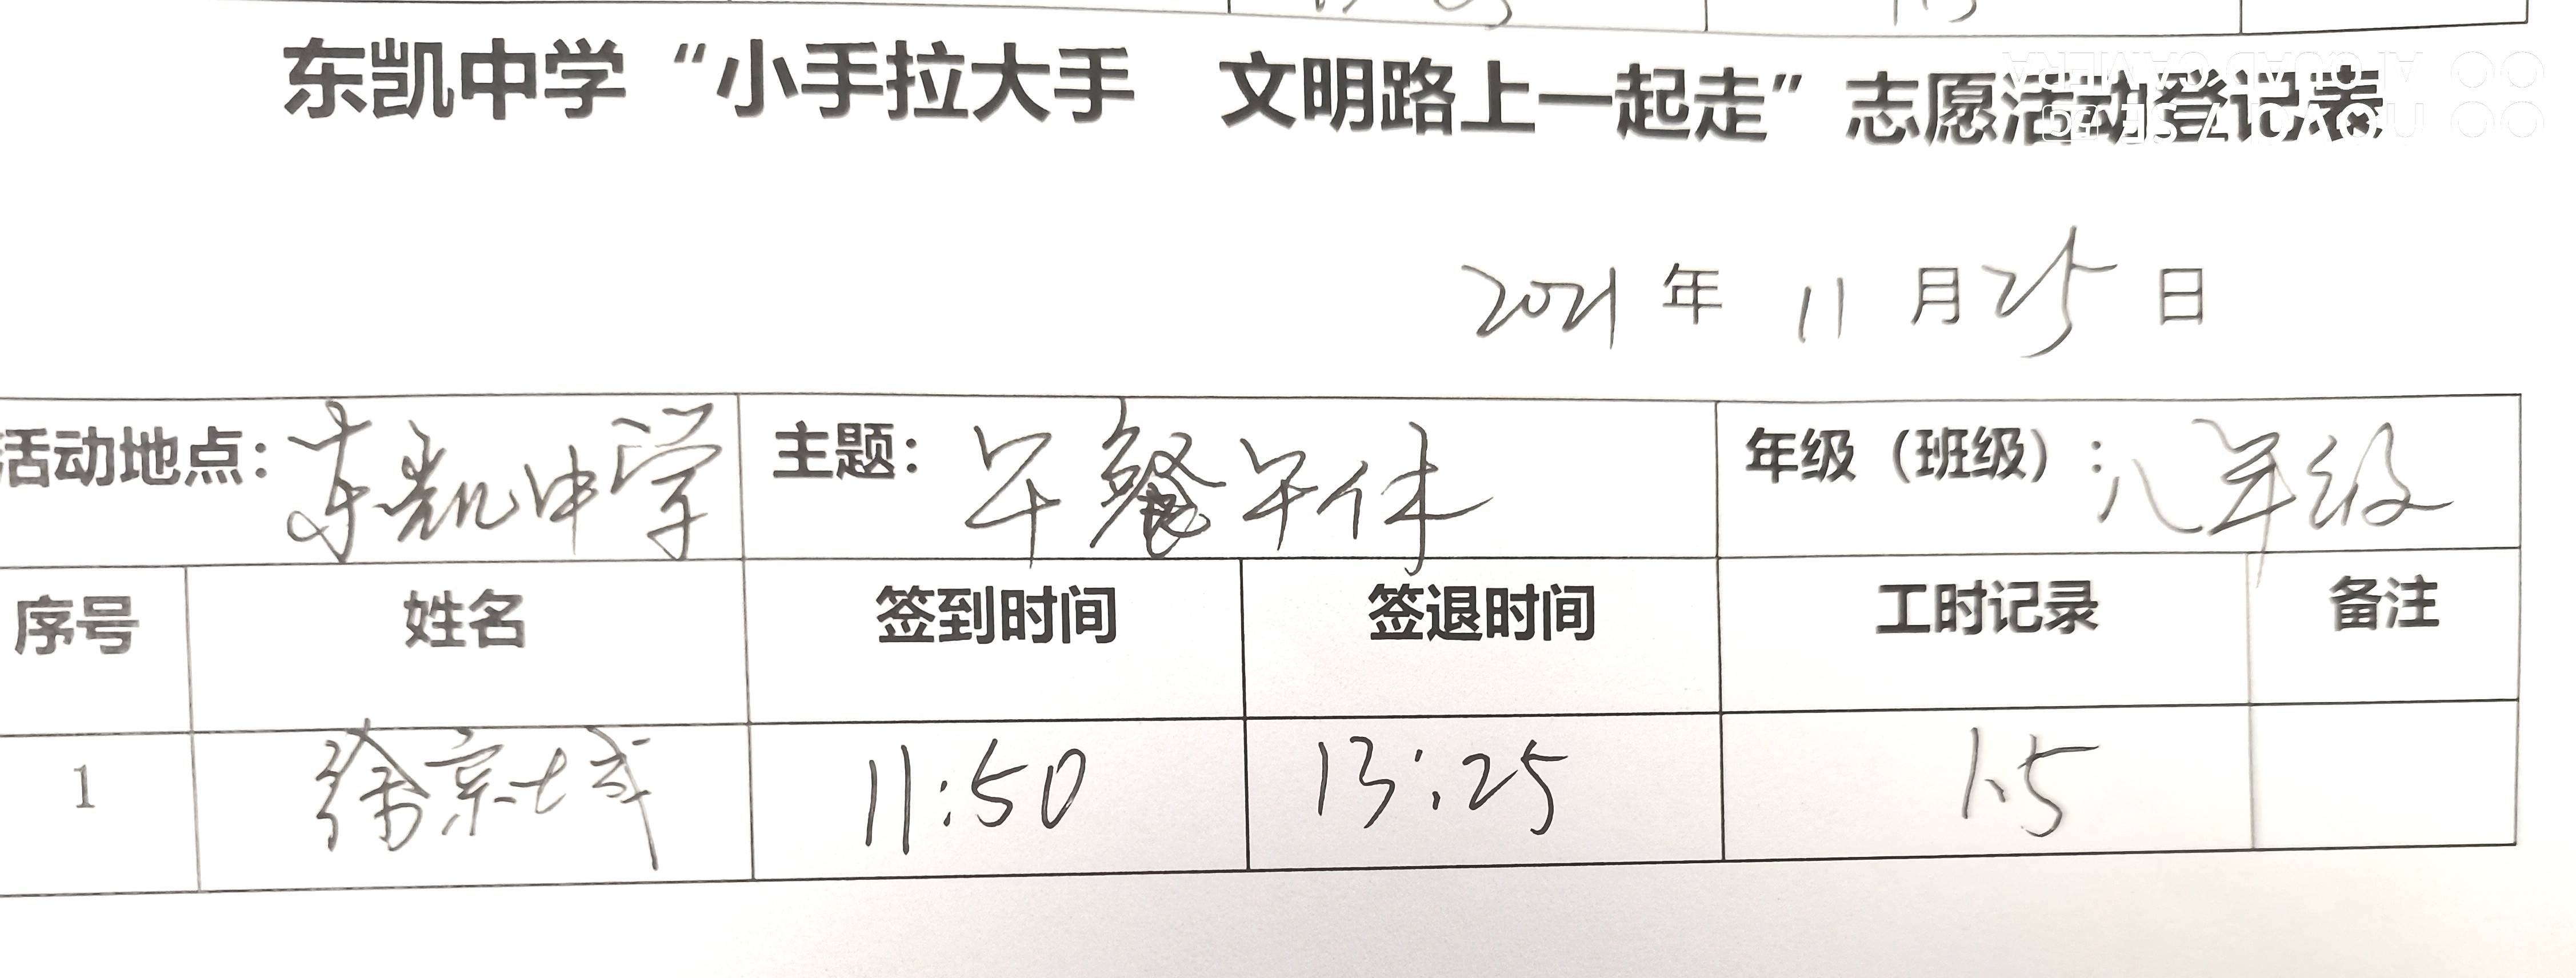 东凯中学“小手拉大手 文明路上一起走”志愿活动登记表
2021 年 11 月 25 日
活动地点：东凯中学 主题：午餐午休 年级（班级）：八年级
序号 姓名 签到时间 签退时间 工时记录 备注
1 徐宗城 11:50 13:25 1.5